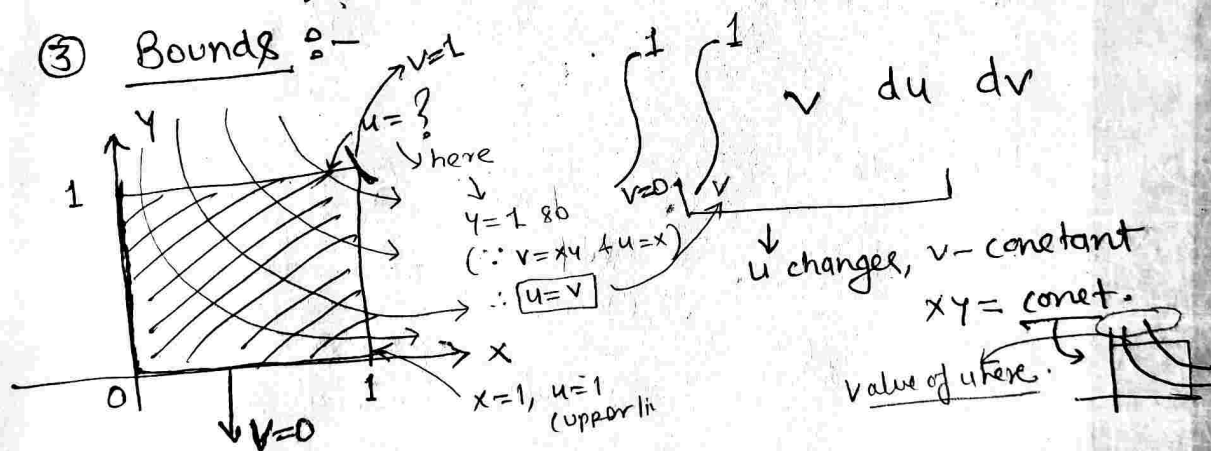 ③ Bounds :-
v=1
u= ?
here
y=1 so
(∵ v=xy, & u=x)
∴ u=v
Y
1
0
1
X
V=0
x=1, u=1
(upper li
∫ 1 ∫ 1 v du dv
v=0 v
u changes, v- constant
xy= const.
value of u here.